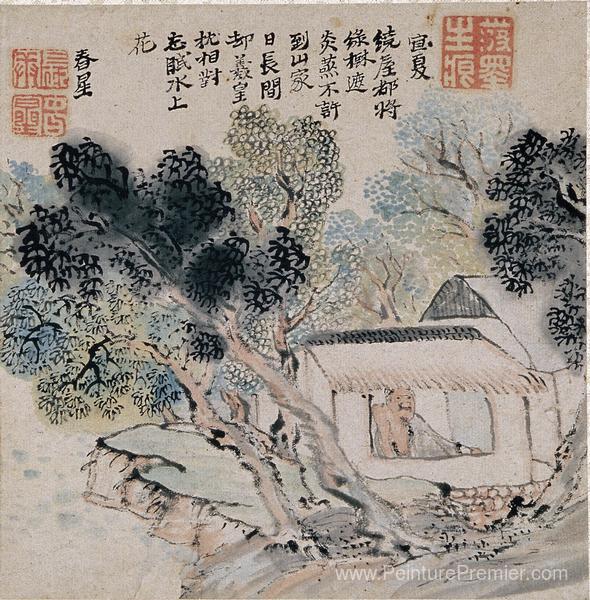 宜夏
繞屋都將
緑樹遮
炎蒸不許
到山家
日長間
却羲皇
枕相對
忘眠水上
花
春星
www.PeinturePremier.com